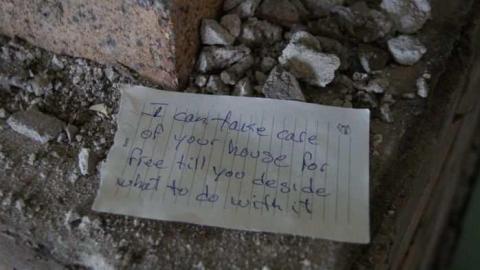 I can take care
of your house for
free till you deside
what to do with it